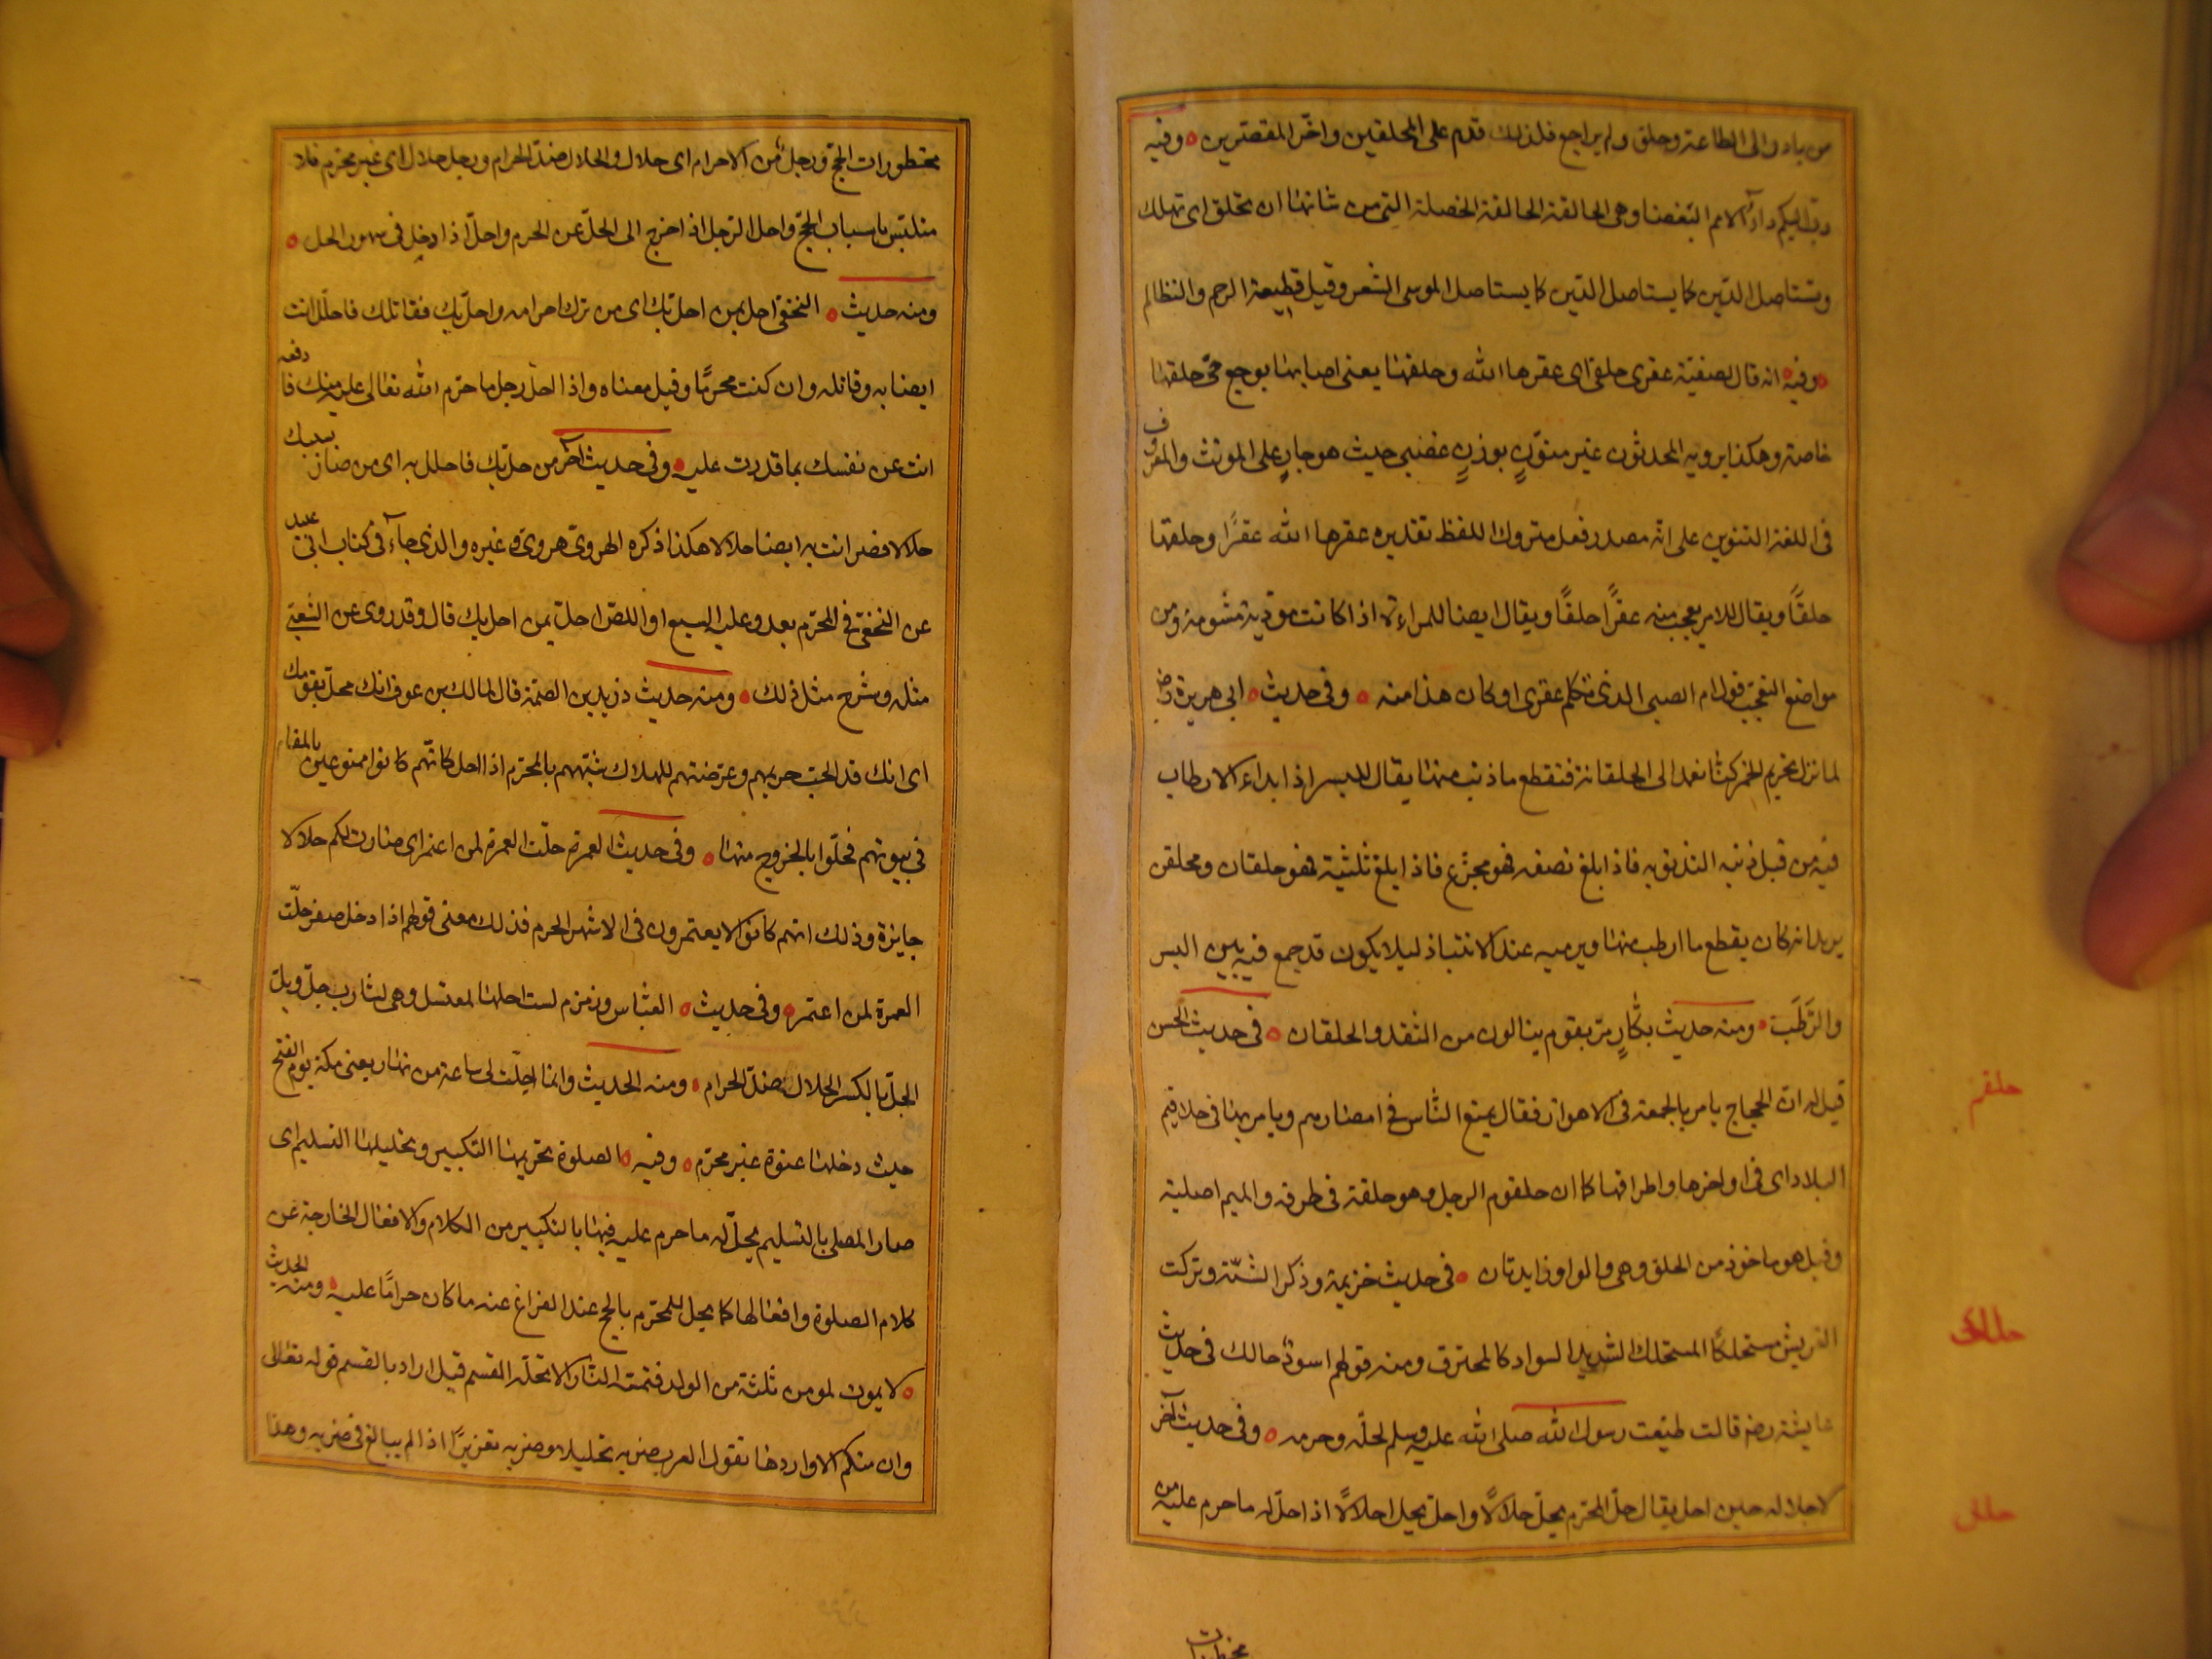 من بادر الى الطاعة وحلق ولم يراجع فلذلك قدم على المحلقين واخّر المقصّرين وفيه
دبّ اليكم داء الامم البغضا وهى الحالقة الحالقة الخصلة التى من شانها ان تحلق اى تهلك
وتستاصل الدّين كما يستاصل الموسى الشعر وقيل قطيعة الرحم والتظالم
وفيه انه قال لصفيّة عقرى حلقى اى عقرها الله وحلقها يعنى اصابها بوجع فى حلقها
خاصة وهكذا يرويه المحدثون غير منوّنٍ بوزنِ غضبى حيث هو جارٍ على المونث والمعروف
فى اللغة التنوين على انّه مصدر فعل متروك اللفظ تقديره عقرها الله عقرًا وحلقها
حلقًا ويقال للامر يعجب منه عقرًا حلقًا ويقال ايضا للمراءة اذا كانت موذية مشومة ومن
مواضع التعجب قول ام الصبى الذى تكلم عقرى اوكان هذا منه وفى حديث ابى هريرة رض
لما نزل تحريم الخمر كنّا نعمد الى الحلقانة فنقطع ما ذنب منها يقال للبسر اذا بداء الارطاب
فيه من قبل ذنبه التذنوبه فاذا بلغ نصفه فهو مجزّع فاذا بلغ ثلثيه فهو حلقان ومحلقن
يريد انه كان يقطع ما ارطب منها ويرميه عند الانتباذ ليلا يكون قد جمع فيه بين البسر
والرَّطَب ومنه حديث بكّارٍ مرّ بقوم ينالون من الثعد والحلقان فى حديث الحسن
قيل له ان الحجاج يامر بالجمعة فى الاهواز فقال يمنع النّاس فى امصارهم ويامر بها فى حلاقيم
البلاد اى فى اواخرها واطرافها كما ان حلقوم الرجل وهو حلقة فى طرفه والميم اصلية
وقيل هو ماخوذ من الحلق وهى والواو زايدتان فى حديث خزيمة وذكر السّنة وتركت
الفريش مستحلكًا المستحلك الشديد السواد كالمحترق ومنه قولهم اسود حالك فى حديث
عايشة رضه قالت طيّبت رسول الله صلى الله عليه وسلم لحلّه وحرمه وفى حديث آخر
لاحلاله حين احل يقال حلّ المحرم يحلّ حلالًا واحلّ يحل احلالًا اذا احلّ له ما حرم عليه من
حلقم
حلك
حلل
محظورات
محظورات الحجّ ورجل من الاحرام اى حلال والحلال ضدّ الحرام ورجل حلال اى غير محرم فلا
متلبّس باسباب الحجّ واحل الرّجل اذا خرج الى الحلّ عن الحرم واحلّ اذا دخل فى شهور الحل
ومنه حديث النخعى احل بمن احل بك اى من ترك احرامه واحلّ بك فقاتلك فاحلل انت
ايضا به وقاتله وان كنت محرمًا وقيل معناه واذا احلّ رجل ما حرم الله تعالى عليه منك فادفعه
انت عن نفسك بما قدرت عليه وفى حديث آخر من حلّ بك فاحلل به اى من صار بسببك
حلالا فصر انت به ايضا حلالا هكذا ذكره الهروى هروى وغيره والذى جآء فى كتاب ابى عبيد
عن النخعى فى المحرم يعدو عليه السبع او اللصّ احلّ بمن احل بك قال وقد روى عن الشعبىّ
مثله وشرح مثل ذلك ومنه حديث دريد بن الصمّة قال لمالك بن عوف انك محلّ بقومك
اى انك قد ابحت حريمهم وعرضتهم للهلاك شبّههم بالمحرم اذا احل كانّهم كانوا ممنوعين بالمقام
فى بيوتهم فحلّوا بالخروج منها وفى حديث العمرة حلّت العمرة لمن اعتمر اى صارت لكم حلالا
جايزة وذلك انهم كانوا لا يعتمرون فى الاشهر الحرم فذلك معنى قولهم اذا دخل صفر حلّت
العمرة لمن اعتمر وفى حديث العبّاس وزمزم لست احلها لمغتسل وهى لشارب حلّ وبلّ
الحلّ بالكسر الحلال ضدّ الحرام ومنه الحديث وانما احِلّت لى ساعة من نهار يعنى مكة يوم الفتح
حيث دخلها عنوة غير محرم وفيه الصلوة تحريمها التكبير وتحليلها التسليم اى
صار المصلى بالتسليم يحلّ له ما حرم عليه فيها بالتكبير من الكلام والافعال الخارجة عن
كلام الصلوة وافعالها كما يحل للمحرم بالحج عند الفراغ عنه ما كان حرامًا عليه ومنه الحديث
لا يموت لمومن ثلثة من الولد فتمسّه النّار الا تحلّة القسم قيل اراد بالقسم قوله تعالى
وان منكم الا واردها تقول العرب ضربه تحليلا وضربه تعزيرًا اذا لم يبالغ فى ضربه وهذا